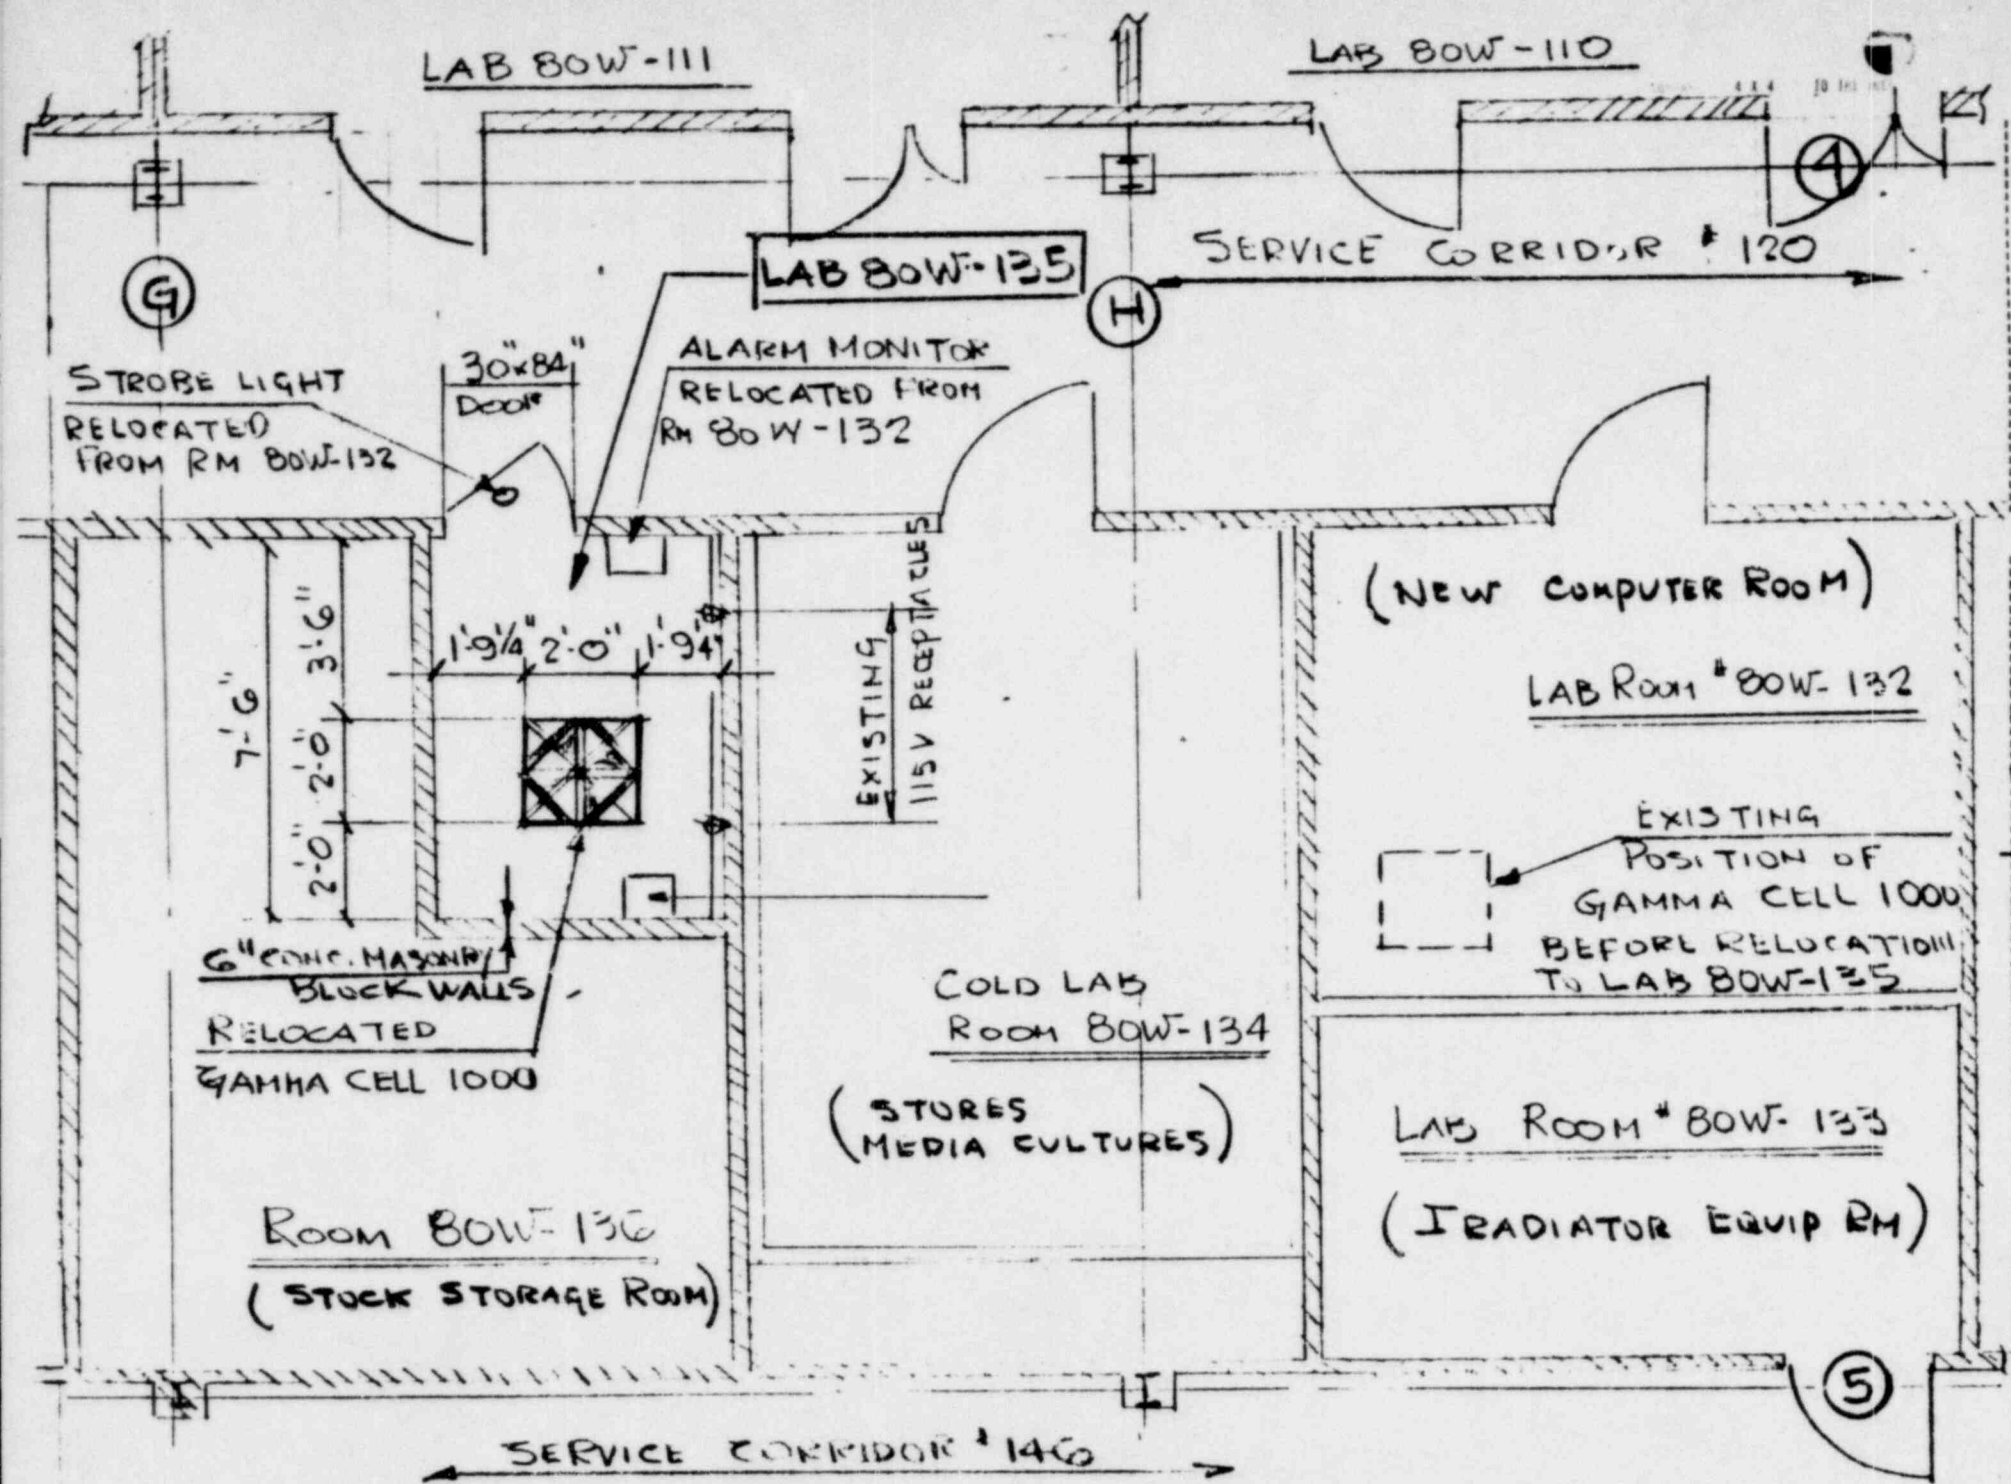 LAB 80W-111
LAB 80W-110
4
LAB 80W-135
SERVICE CORRIDOR # 120
G
H
STROBE LIGHT
RELOCATED
FROM RM 80W-132
30"x84"
DOOR
ALARM MONITOR
RELOCATED FROM
RM 80W-132
7'-6"
3'-6"
2'-0"
2'-0"
1'-9 1/4"
2'-0"
1'-9 1/4"
EXISTING
115V RECEPTACLES
(NEW COMPUTER ROOM)
LAB ROOM # 80W-132
EXISTING
POSITION OF
GAMMA CELL 1000
BEFORE RELOCATION
TO LAB 80W-135
6" CONC. MASONRY
BLOCK WALLS
RELOCATED
GAMMA CELL 1000
COLD LAB
ROOM 80W-134
(STORES
MEDIA CULTURES)
LAB ROOM # 80W-133
(IRADIATOR EQUIP RM)
ROOM 80W-136
(STOCK STORAGE ROOM)
5
SERVICE CORRIDOR # 146